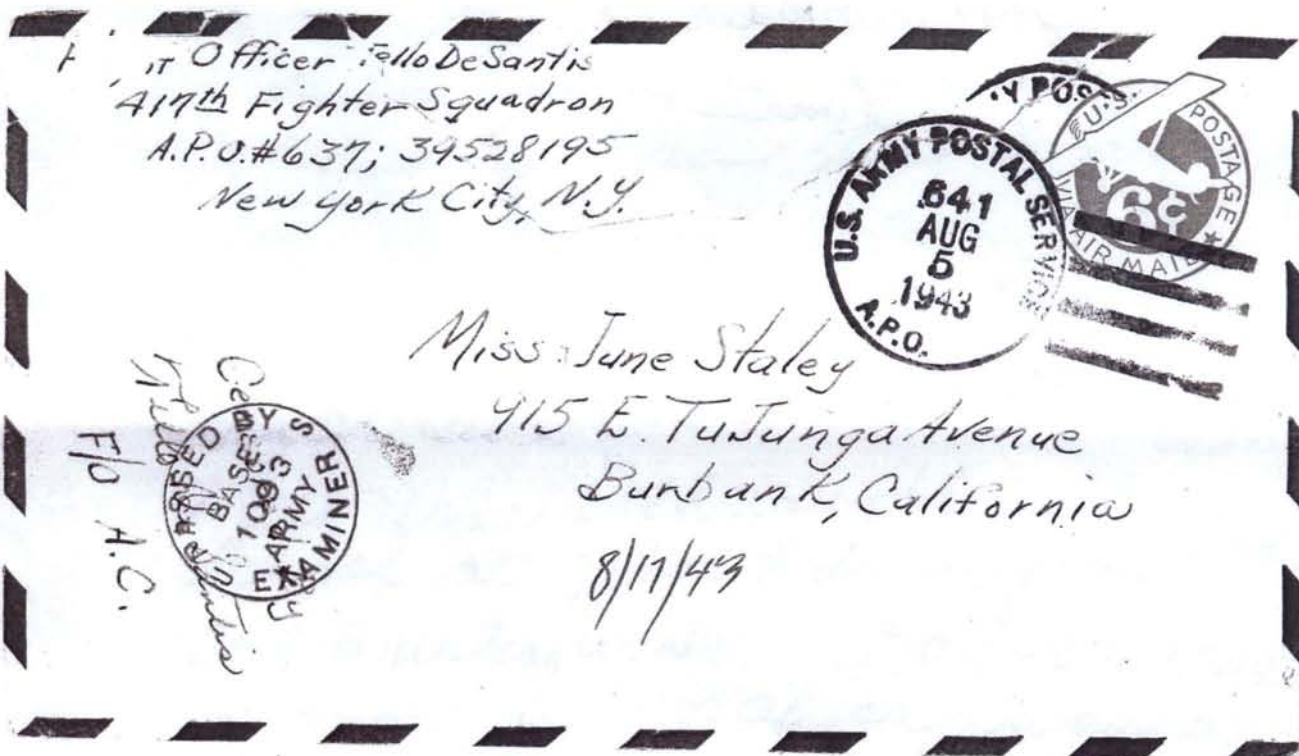 Officer DeSantis
417th Fighter Squadron
A.P.O.#637; 39528195
New York City, N.Y.
U.S. ARMY POSTAL SERVICE
641
AUG
5
1943
A.P.O.
U.S. POSTAGE
6¢
VIA AIR MAIL
Miss June Staley
415 E. TuJunga Avenue
Burbank, California
8/17/43
PASSED BY
BASE
ARMY
EXAMINER
F/O A.C.